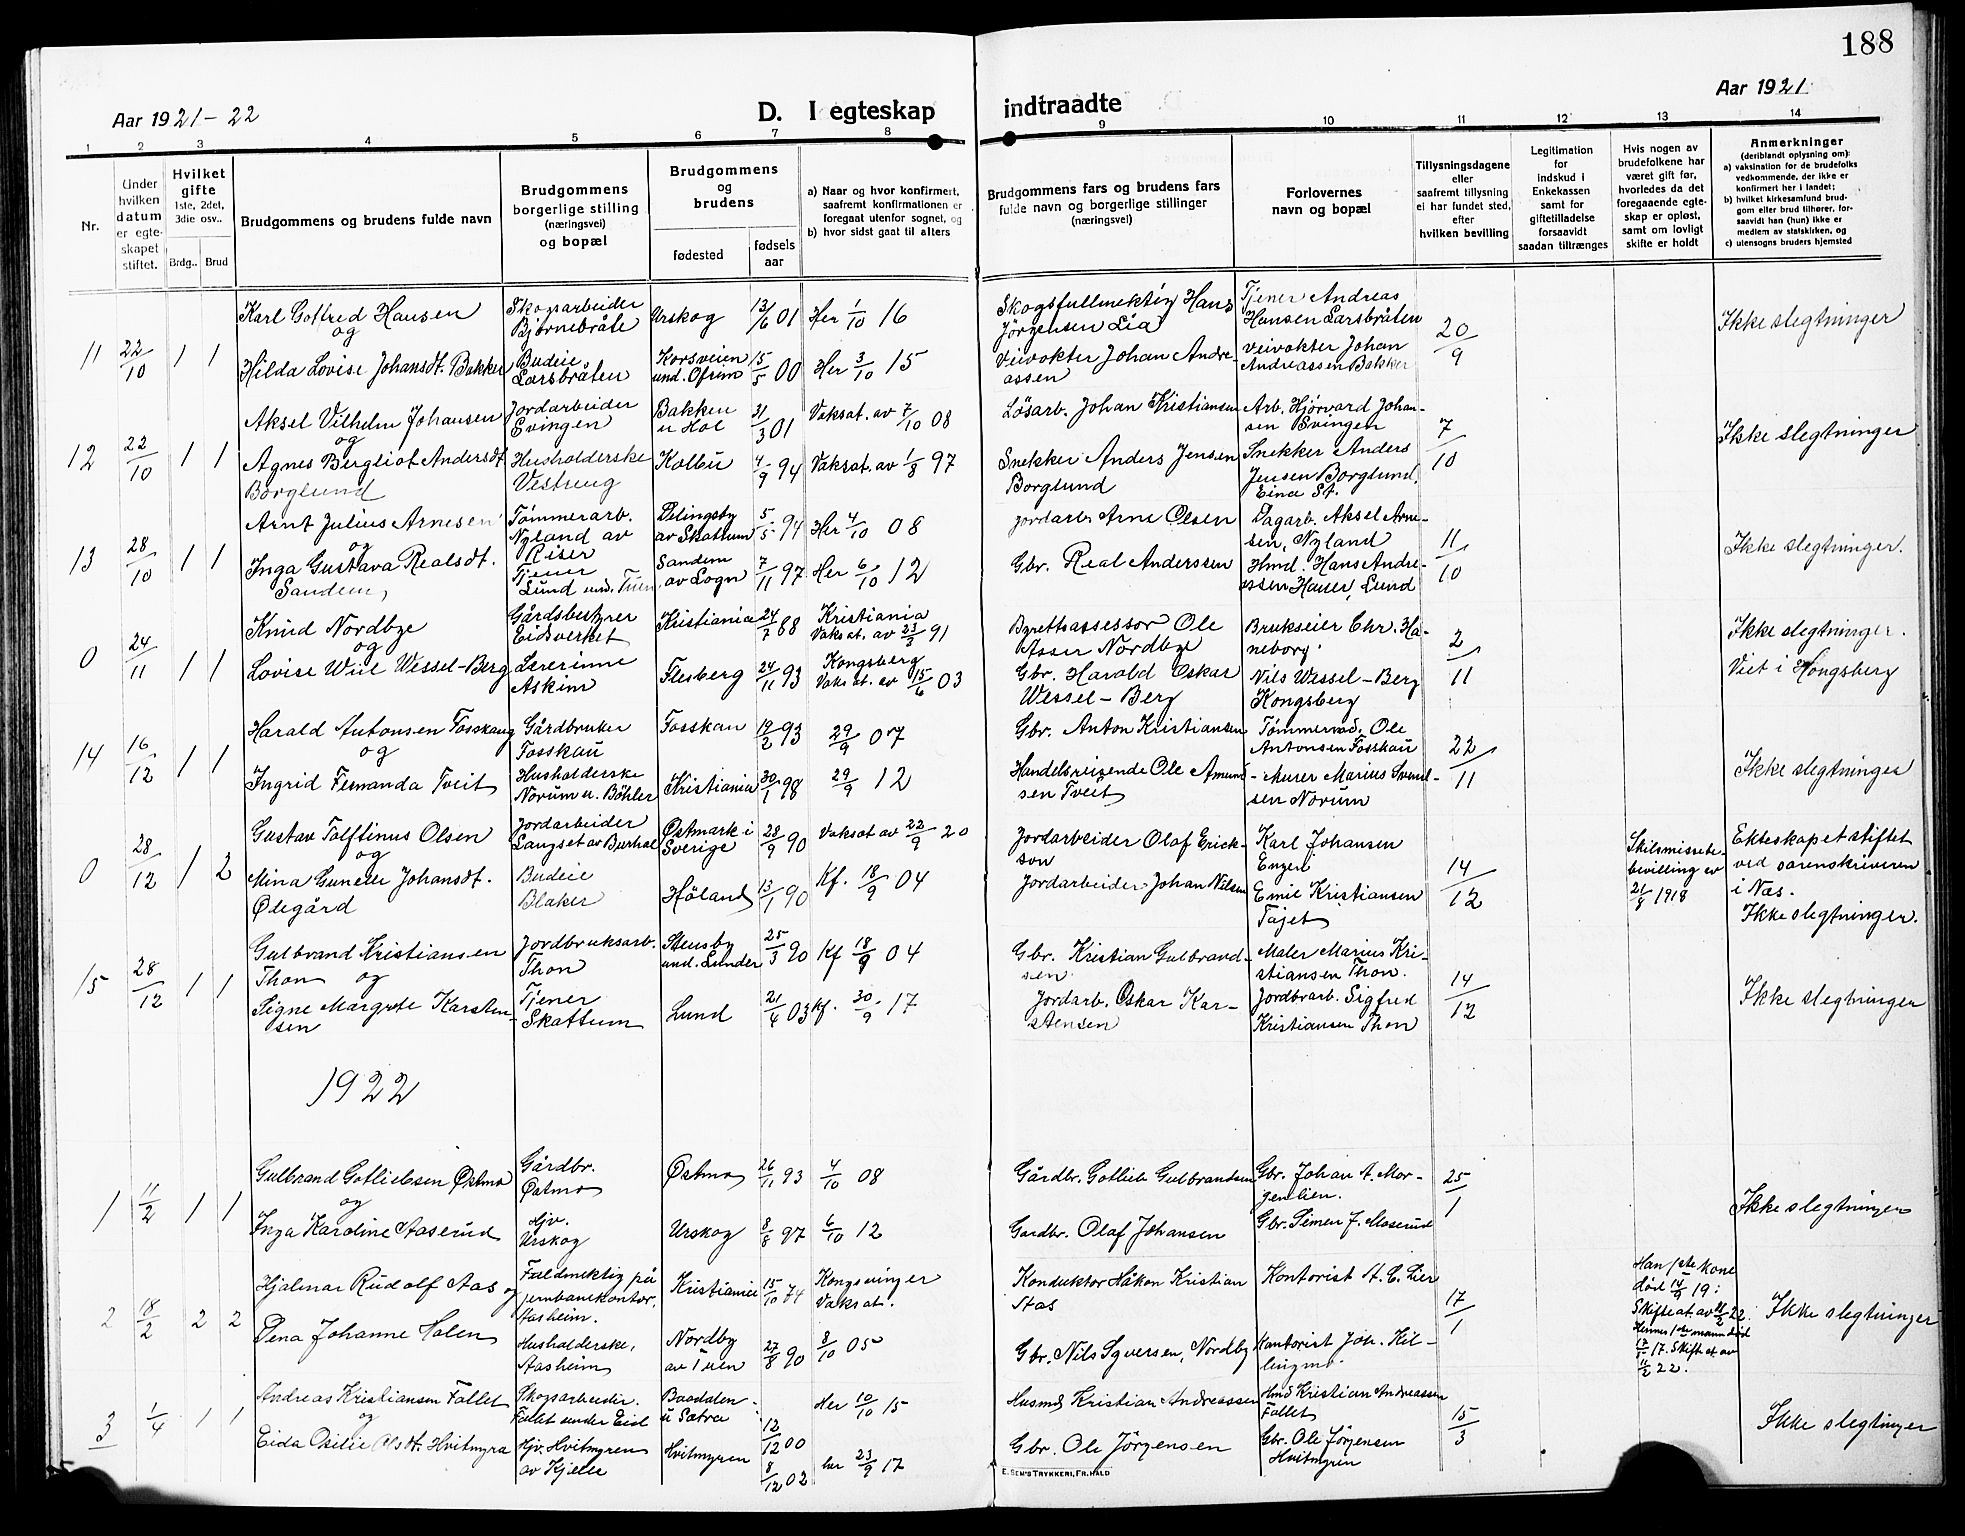 188
Aar 1921-22
D. I egteskap indtraadte
Aar 1921
1 2 3 4 5 6 7 8 9 10 11 12 13 14
Nr.
Under hvilken datum er egteskapet stiftet.
Hvilket gifte 1ste, 2det, 3die osv..
Brdg.. Brud
Brudgommens og brudens fulde navn
Brudgommens borgerlige stilling (næringsvei) og bopæl
Brudgommens og brudens
fødested
fødsels aar
a) Naar og hvor konfirmert, saafremt konfirmationen er foregaat utenfor sognet, og
b) hvor sidst gaat til alters
Brudgommens fars og brudens fars fulde navn og borgerlige stillinger (næringsvei)
Forlovernes navn og bopæl
Tillysningsdagene eller saafremt tillysning ei har fundet sted, efter hvilken bevilling
Legitimation for indskud i Enkekassen samt for giftetilladelse forsaavidt saadan tiltrænges
Hvis nogen av brudefolkene har været gift før, hvorledes da det foregaaende egteskap er opløst, samt om lovligt skifte er holdt
Anmerkninger
(deriblandt oplysning om):
a) vaksination for de brudefolks vedkommende, der ikke er konfirmert her i landet;
b) hvilket kirkesamfund brudgom eller brud tilhører, forsaavidt han (hun) ikke er medlem av statskirken, og
c) utensogns bruders hjemsted
11 22/10 1 1
Karl Gotfred Hansen og
Skogsarbeider Bjørnebråte
Urskog 13/6 01 Her 1/10 16
Skogsfullmektig Hans Jørgensen Lia
Tjener Andreas Hansen Larsbråten
20/9
Ikke slegtninger
Hilda Lovise Johansdt. Bakker
Budeie Larsbråten
Korsveien und. Ofrim 15/5 00 Her 3/10 15
Veivokter Johan Andreassen
Veivokter Johan Andreassen Bakker
12 22/10 1 1
Aksel Vilhelm Johansen og
Jordarbeider Evingen
Bakken u Hol 31/3 01 Vaksat. av 7/10 08
Løsarb. Johan Kristiansen
Arb. Hjørvard Johansen Evingen
7/10
Ikke slegtninger
Agnes Bergliot Andersdt Borglund
Husholderske Vestreng
Kolbu 4/9 94 Vaksat. av 1/8 97
Snekker Anders Jensen Borglund
Snekker Anders Jensen Borglund, Eina St.
13 28/10 1 1
Arnt Julius Arnesen og
Tømmerarb. Nyland av Riser
Delingsby av Skattum 5/5 94 Her 4/10 08
Jordarb. Arne Olsen
Dagarb. Aksel Arnesen, Nyland
11/10
Ikke slegtninger.
Inga Gustava Realsdt. Sandem,
Tjener Lund und. Tuen
Sandem av Logn 7/11 97 Her 6/10 12
Gbr. Real Anderssen
Hmd. Hans Andreassen Hauer, Lund
0 24/11 1 1
Knud Nordbye og
Gårdsbestyrer Eidsverket
Kristiania 24/7 88 Kristiania Vaksat. av 23/3 91
Byrettsassessor Ole Asser Nordbye
Brukseier Chr. Haneborg.
2/11
Ikke slegtninger.
Viet i Kongsberg
Lovise Wiil Wessel-Berg
Lærerinne Askim
Flesberg 24/11 93 Kongsberg Vaksat. av 15/6 03
Gbr. Harald Oskar Wessel-Berg
Nils Wessel-Berg Kongsberg
14 16/12 1 1
Harald Antonsen Fosskaug og
Gårdbruker Fosskau
Fosskau 19/2 93 29/9 07
Gbr. Anton Kristiansen
Tømmermd. Ole Antonsen Fosskau
22/11
Ikke slegtninger
Ingrid Fernanda Tveit
Husholderske Norum u. Bøhler
Kristiania 30/1 98 29/9 12
Handelsreisende Ole Amundsen Tveit
Murer Marius Svendsen Norum
0 28/12 1 2
Gustav Tolftinus Olsen og
Jordarbeider Langset av Burhol
Østmark i Sverige 28/9 90 Vaksat av 22/9 20
Jordarbeider Olaf Erickson
Karl Johansen Engen
14/12
Skilsmissebebevilling av 21/8 1918
Ekteskapet stiftet ved sorenskriveren i Nes.
Ikke slegtninger.
Mina Gunelle Johansdt. Ølegård
Budeie Blaker
Høland 13/1 90 Kf. 18/9 04
Jordarbeider Johan Nilsen
Emil Kristiansen Tajet
15 28/12 1 1
Gulbrand Kristiansen Thon og
Jordbruksarb. Thon
Stensby und. Lunder 25/3 90 Kf 18/9 04
Gbr. Kristian Gulbrandsen
Maler Marius Kristiansen Thon.
14/12
Ikke slegtninger
Signe Margrete Karstensen
Tjener Skattum
Lund 21/4 03 Kf. 30/9 17
Jordarb. Oskar Karstensen
Jordbrarb. Sigfred Kristiansen Thon
1922
1 11/2 1 1
Gulbrand Gotliebsen Østmo og
Gårdbr. Østmo
Østmo 26/11 93 4/10 08
Gårdbr. Gotlieb Gulbrandsen
Gbr. Johan A. Morgenlien.
25/1
Ikke slegtninger
Inga Karoline Aaserud
Hjv. Urskog
Urskog 8/8 97 6/10 12
Gardbr. Olaf Johansen
Gbr. Simen J. Maserud
2 18/2 2 2
Hjalmar Rudolf Aas og
Fuldmektig på jernbanekontor, Aasheim.
Kristiania 15/10 74 Kongsvinger Vaksat.
Konduktør Håkon Kristian Aas
Kontorist A. C. Lier
17/1
Han 1ste kone död 14/9 19: Skifteat. av 11/2 22. Hennes 1ste mann död 17. Skift at. av 11/2 22.
Ikke slegtninger
Pena Johanne Holen
Husholderske, Aasheim
Nordby av Tuen 27/8 90 8/10 05
Gbr. Nils Syversen, Nordby
Kontorist Joh. Killingmo
3 1/4 1 1
Andreas Kristiansen Fallet og
Skogsarbeider. Fallet under Eid
Baadden u Sætra 12/12 00 Her 10/10 15
Husmd Kristian Andreassen
Hmd Kristian Andreassen Fallet
15/3
Ikke slegtinger
Eida Otilie Olsdt. Hvitmyra
Hjv. Hvitmyren av Kjelle
Hvitmyren 8/12 02 her 23/9 17
Gbr. Ole Jörgensen
Gbr. Ole Jörgensen Hvitmyren
E. SEM'S TRYKKERI, FR.HALD